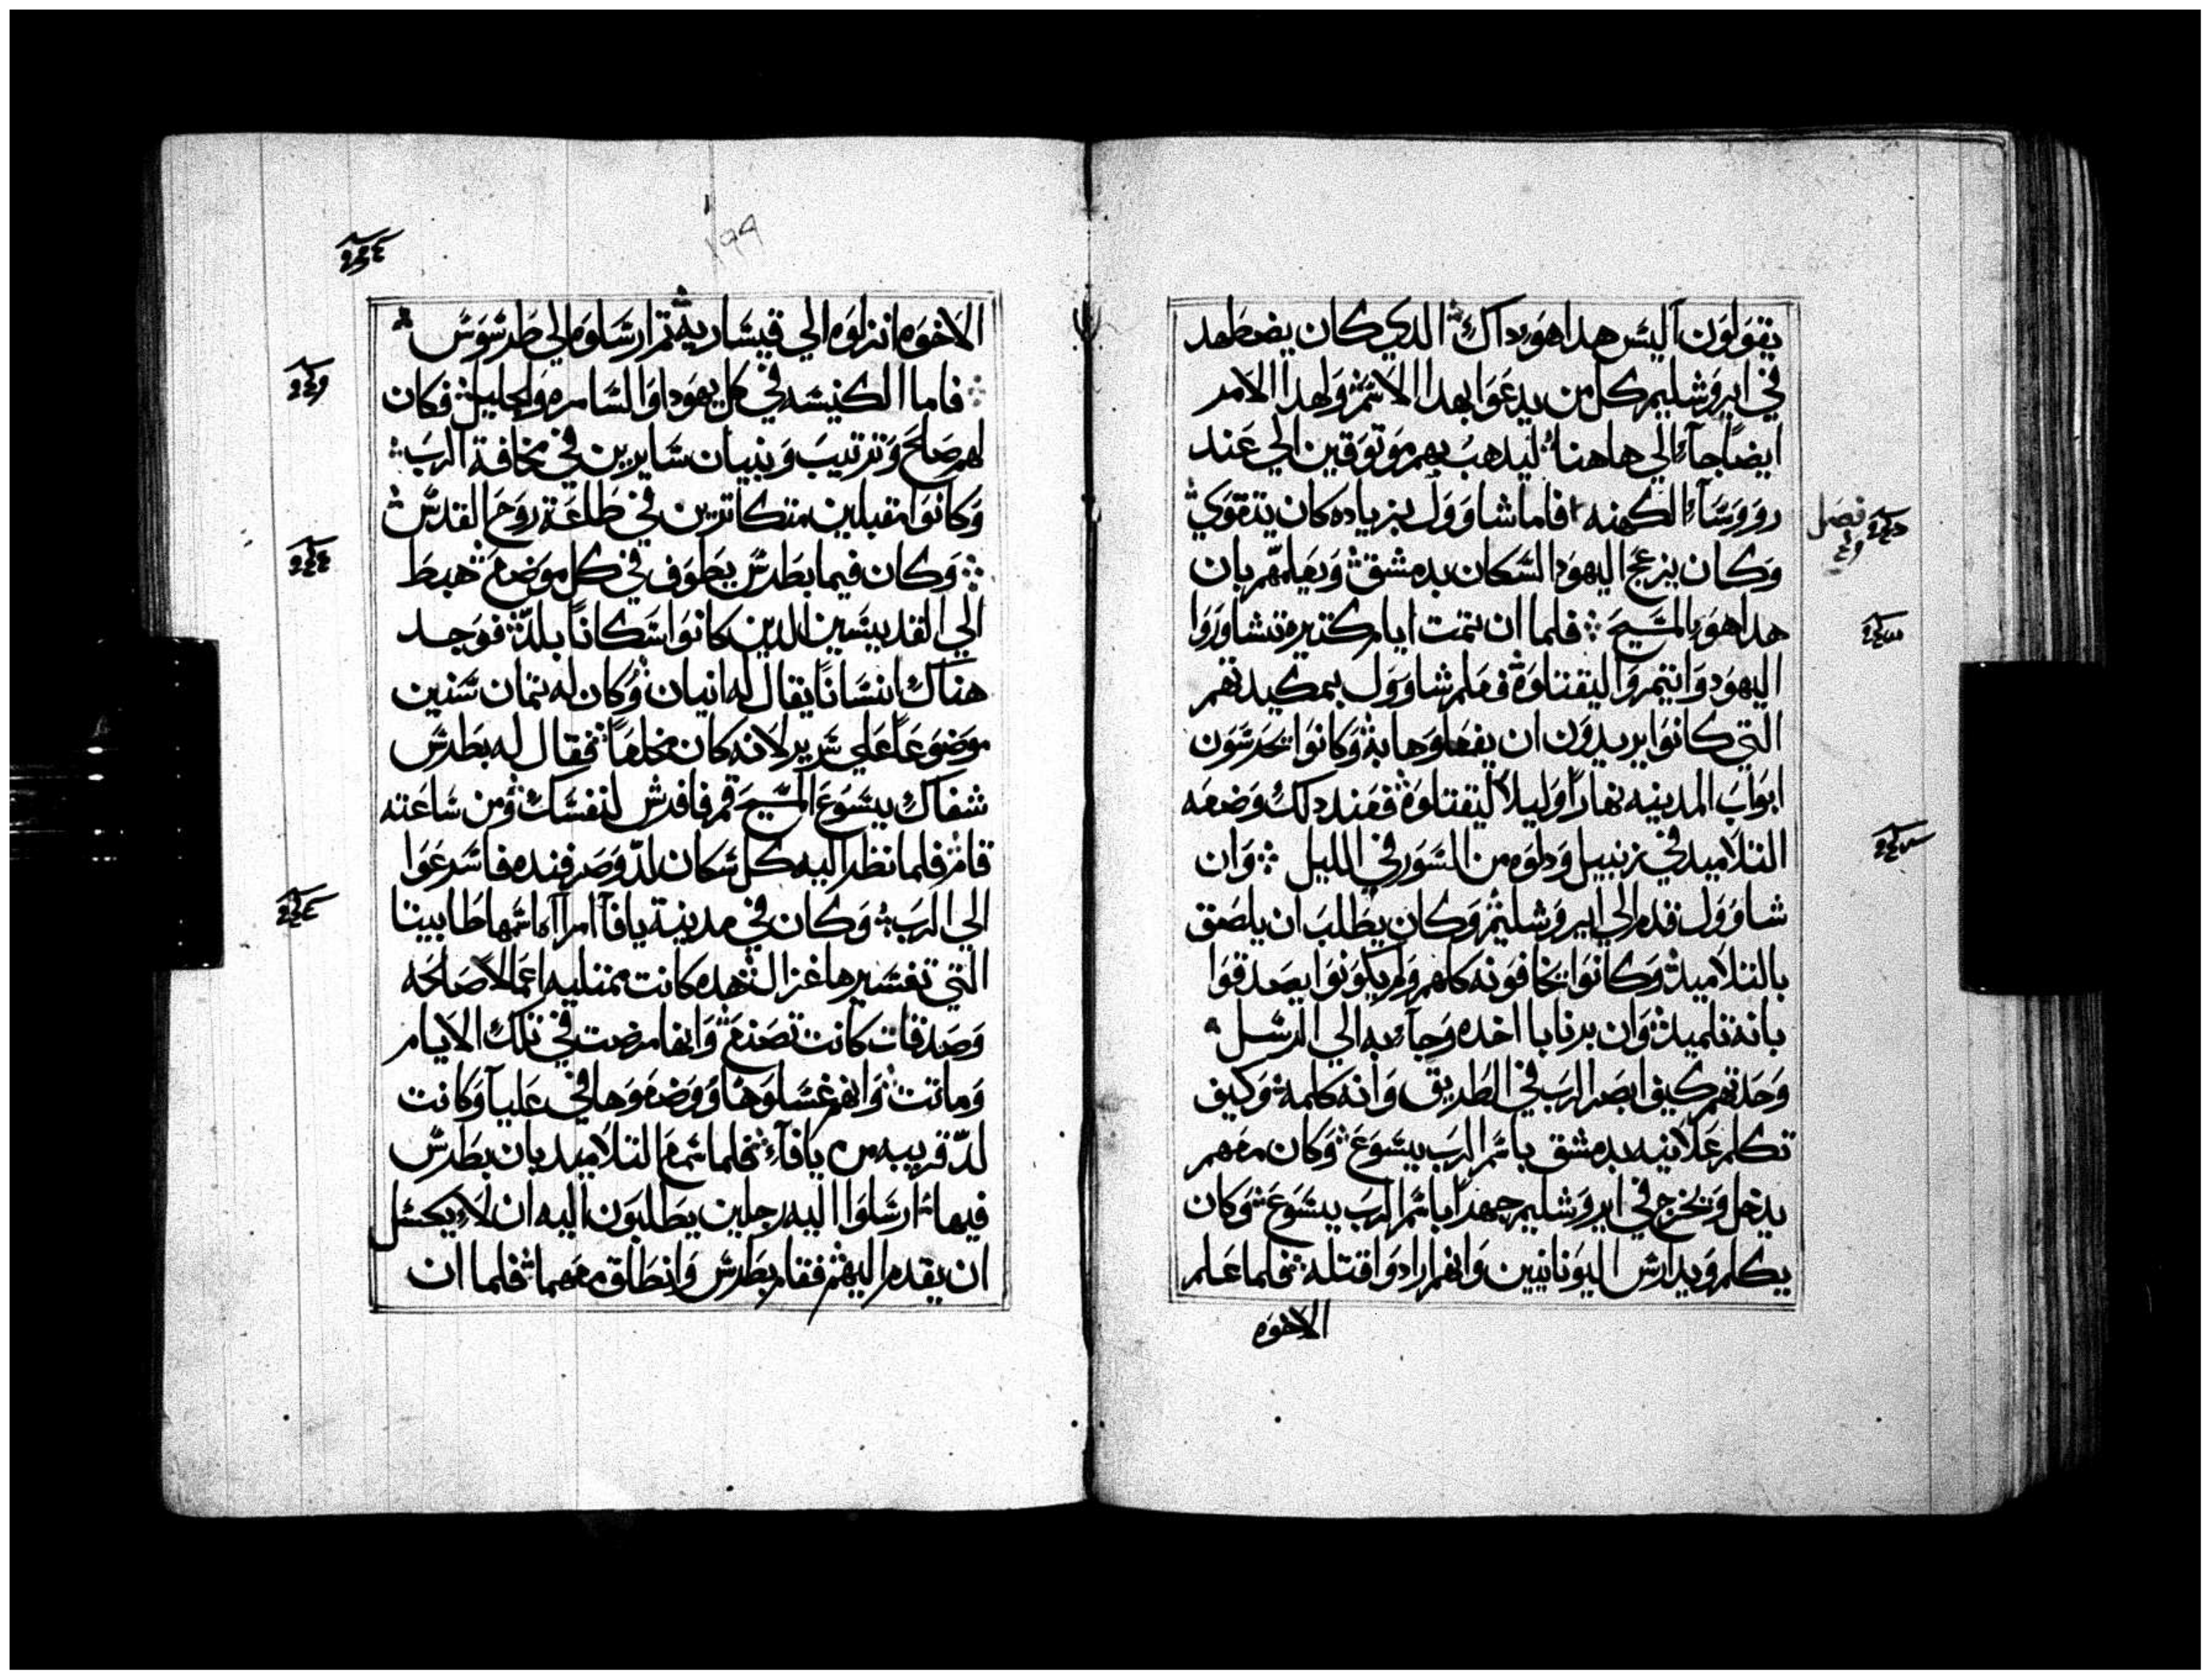 يقولون اليس هدا هو داك الدي كان يضطهد
في ايروشليم كل من يدعوا بهدا الاسم ولهدا الامر
ايضا جاء الي هاهنا ليدهب بهم موتوقين الي عند
رووساء الكهنه فاما شاوول بزياده كان يتقوي
وكان يزعج اليهود السكان بدمشق ويعلمهم بان
هدا هو المسيح فلما ان تمت ايام كتيره تشاوروا
اليهود وانتمروا ليقتلوه فعلم شاوول بمكيدتهم
التي كانوا يريدون ان يفعلوها به وكانوا يحرسون
ابواب المدينه نهارا وليلا ليقتلوه فعند دلك وضعه
التلاميد في زنبيل ودلوه من السور في الليل وان
شاوول قدم الي ايروشليم وكان يطلب ان يلصق
بالتلاميد وكانوا يخافونه كلهم ولم يكونوا يصدقوا
بانه تلميد وان برنابا اخده وجاء به الي الرسل
وحدتهم كيف ابصر الرب في الطريق وانه كلمه وكيف
تكلم علانيه بدمشق باسم الرب يسوع وكان معهم
يدخل ويخرج في ايروشليم جهدا باسم الرب يسوع وكان
يكلم ويدارس اليونانيين وانهم ارادوا قتله فلما علم
الاخوه
فصل
١٩٩
الاخوه انزلوه الي قيساريه تم ارسلوه الي طرسوس
فاما الكنيسه في كل يهودا والسامره والجليل فكان
لهم صلح وترتيب وبنيان سايرين في مخافة الرب
وكانوا مقبلين متكاترين في طلعة روح القدس
وكان فيما بطرس يطوف في كل موضع هبط
الي القديسين الدين كانوا سكانا بلد فوجد
هناك انسانا يقال له انيان وكان له تمان سنين
موضوعا علي سرير لانه كان مخلعا فقال له بطرس
شفاك يسوع المسيح قم فافرش لنفسك ومن ساعته
قام فلما نظر اليه كل سكان لد وصرفنده فاسرعوا
الي الرب وكان في مدينة يافا امراه اسمها طابيتا
التي تفسيرها غزال هده كانت ممتليه اعمالا صالحه
وصدقات كانت تصنع وانها مرضت في تلك الايام
وماتت وانهم غسلوها ووضعوها في عليا وكانت
لد قريبه من يافاء فلما سمع التلاميد بان بطرس
فيها ارسلوا اليه رجلين يطلبون اليه ان لا يكسل
ان يقدم اليهم فقام بطرس وانطلق معهما فلما ان